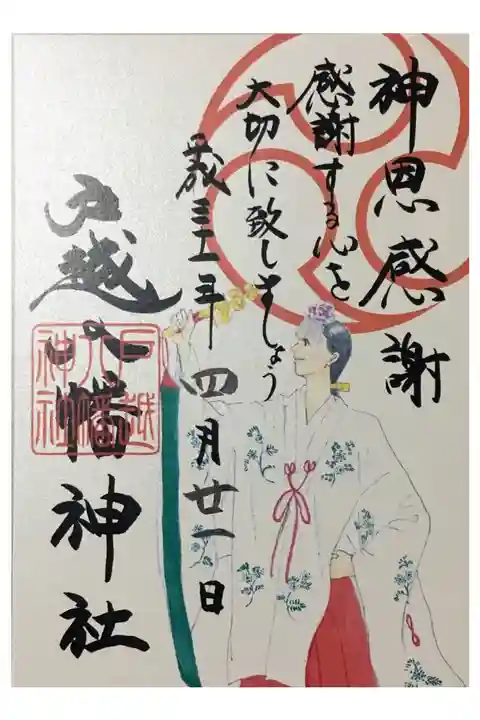 神恩感謝
感謝する心を
大切に致しましょう
平成三十一年四月廿一日
戸越八幡神社
戸越八幡神社